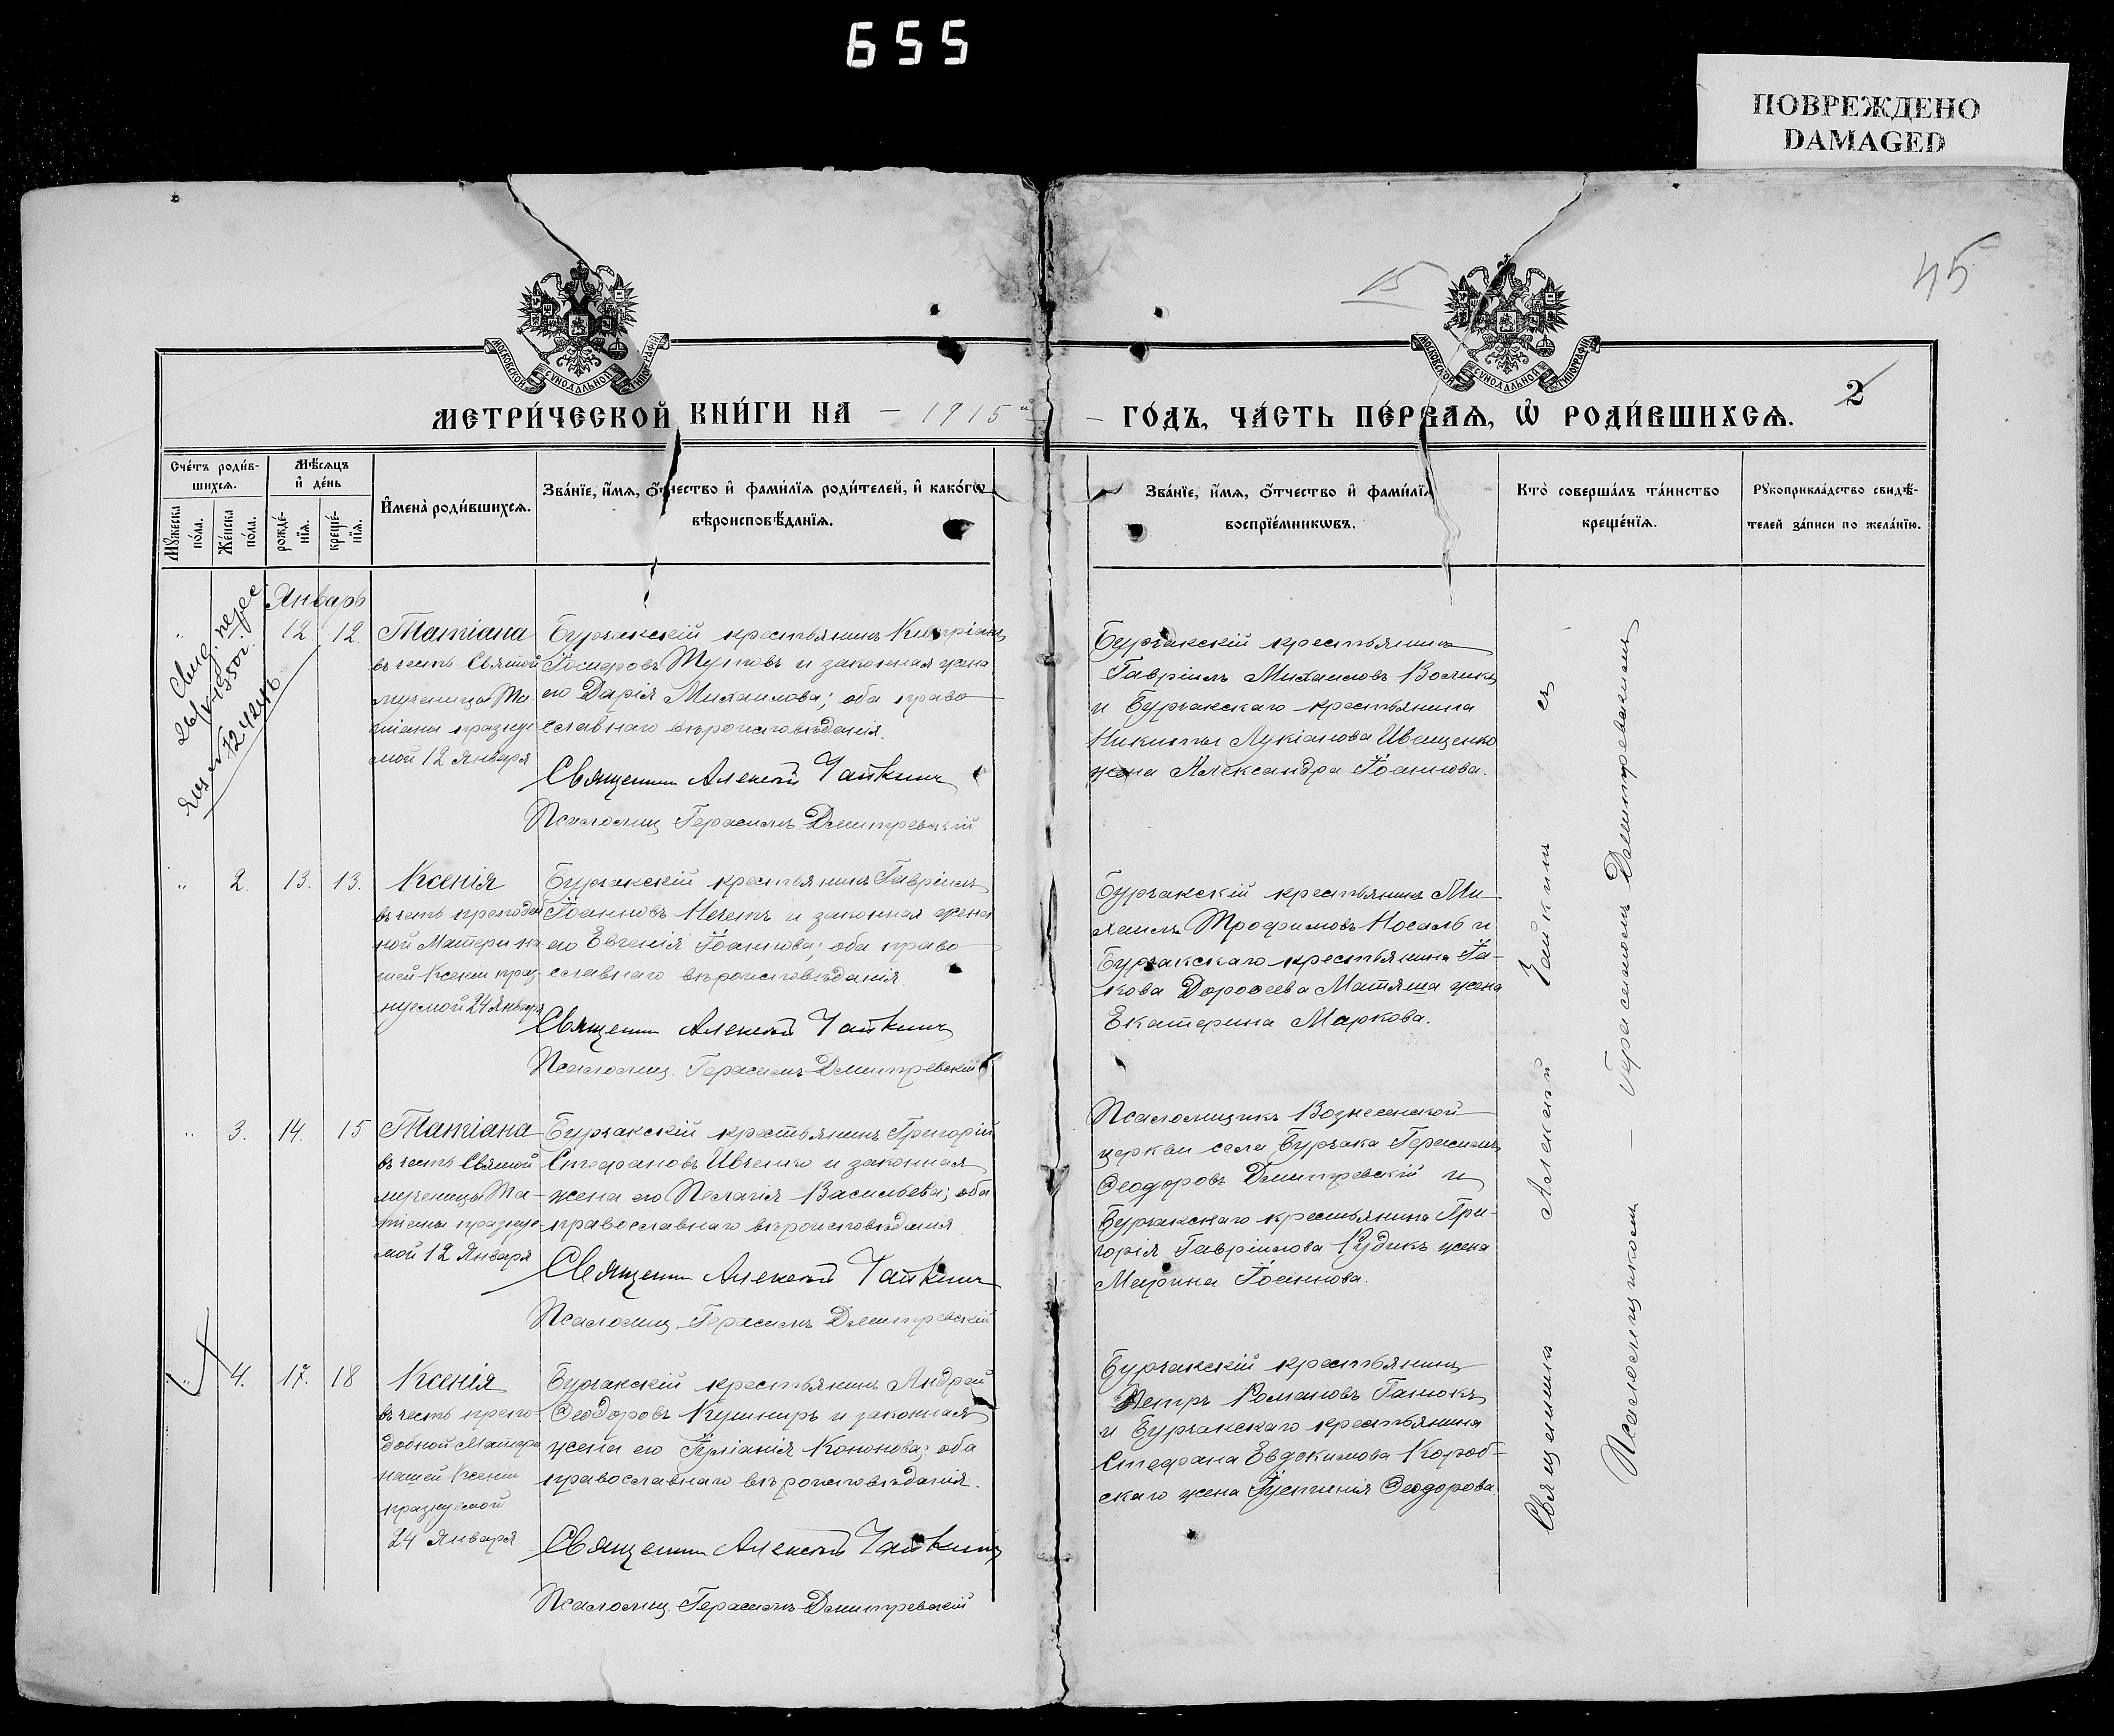 655
ПОВРЕЖДЕНО
DAMAGED
15
45
МОСКОВСКОЙ СѴНОДАЛЬНОЙ ТИПОГРАФІИ
МОСКОВСКОЙ СѴНОДАЛЬНОЙ ТИПОГРАФІИ
2
МЕТРИ́ЧЕСКОЙ КНИ́ГИ НА – 1915 – ГО́ДЪ, ЧА́СТЬ ПЕ́РВАЯ, Ѡ҆ РОДИ́ВШИХСЯ.
Сче́тъ роди́вшихся.
Мѣ́сяцъ и҆ де́нь
Мꙋ́жеска по́ла.
Же́нска по́ла.
рожде́нїя.
креще́нїя.
И҆мена̀ роди́вшихся.
Зва́нїе, и҆́мя, ѻ҆́тчество и҆ фами́лїя роди́телей, и҆ како́гѡ
вѣроисповѣ́данїя.
Зва́нїе, и҆́мя, ѻ҆́тчество и҆ фами́лїя
воспрїе́мникѡвъ.
Кто̀ соверша́лъ та́инство
креще́нїя.
Рꙋкоприкла́дство свидѣ́-
телей за́писи по жела́нїю.
Январь
" 12. 12.
Татіана
въ честь Святой
мученицы Та-
тіаны празнуе-
мой 12 Января
Бурчакскій крестьянинъ Кипріанъ
Іосифовъ и законная жена
его Дарія Михаилова; оба право-
славнаго вѣроисповѣданія.
Священникъ Алексѣй Чайкинъ
Псаломщ. Герасимъ Демитревскій
Бурчакскій крестьянинъ
Гавріилъ Михаиловъ Воликъ
и Бурчакскаго крестьянина
Никиты Лукіанова Иващенко
жена Александра Іоаннова.
" 2. 13. 13.
Ксенія
въ честь преподоб-
ной Матери на-
шей Ксеніи праз-
нуемой 24 Января
Бурчакскій крестьянинъ Гавріилъ
Іоанновъ и законная жена
его Евгенія Іоаннова; оба право-
славнаго вѣроисповѣданія.
Священникъ Алексѣй Чайкинъ
Псаломщ. Герасимъ Демитревскій
Бурчакскій крестьянинъ Ми-
хаилъ Трофимовъ Носаль и
Бурчакскаго крестьянина Іа-
кова Дороѳеева Матяша жена
Екатерина Маркова.
" 3. 14. 15
Татіана
въ честь Святой
мученицы Та-
тіаны празнуе-
мой 12 Января
Бурчакскій крестьянинъ Григорій
Стефановъ Ивченко и законная
жена его Пелагія Васильева; оба
православнаго вѣроисповѣданія.
Священникъ Алексѣй Чайкинъ
Псаломщ. Герасимъ Демитревскій
Псаломщикъ Вознесенской
церкви села Бурчака Герасимъ
Ѳеодоровъ Демитревскій и
Бурчакскаго крестьянина Гри-
горія Гавріилова Рудикъ жена
Марина Іоаннова.
" 4. 17. 18
Ксенія
въ честь препо-
добной Матери
нашей Ксеніи
празнуемой
24 Января
Бурчакскій крестьянинъ Андрей
Ѳеодоровъ Кушниръ и законная
жена его Іуліанія Кононова; оба
православнаго вѣроисповѣданія.
Священникъ Алексѣй Чайкинъ
Псаломщ. Герасимъ Демитревскій
Бурчакскій крестьянинъ
Петръ Романовъ Ганюкъ
и Бурчакскаго крестьянина
Стефана Евдокимова Короб-
скаго жена Ѳеодорова.
Священникъ Алексѣй Чайкинъ съ
Псаломщикомъ – Герасимомъ Демитревскимъ